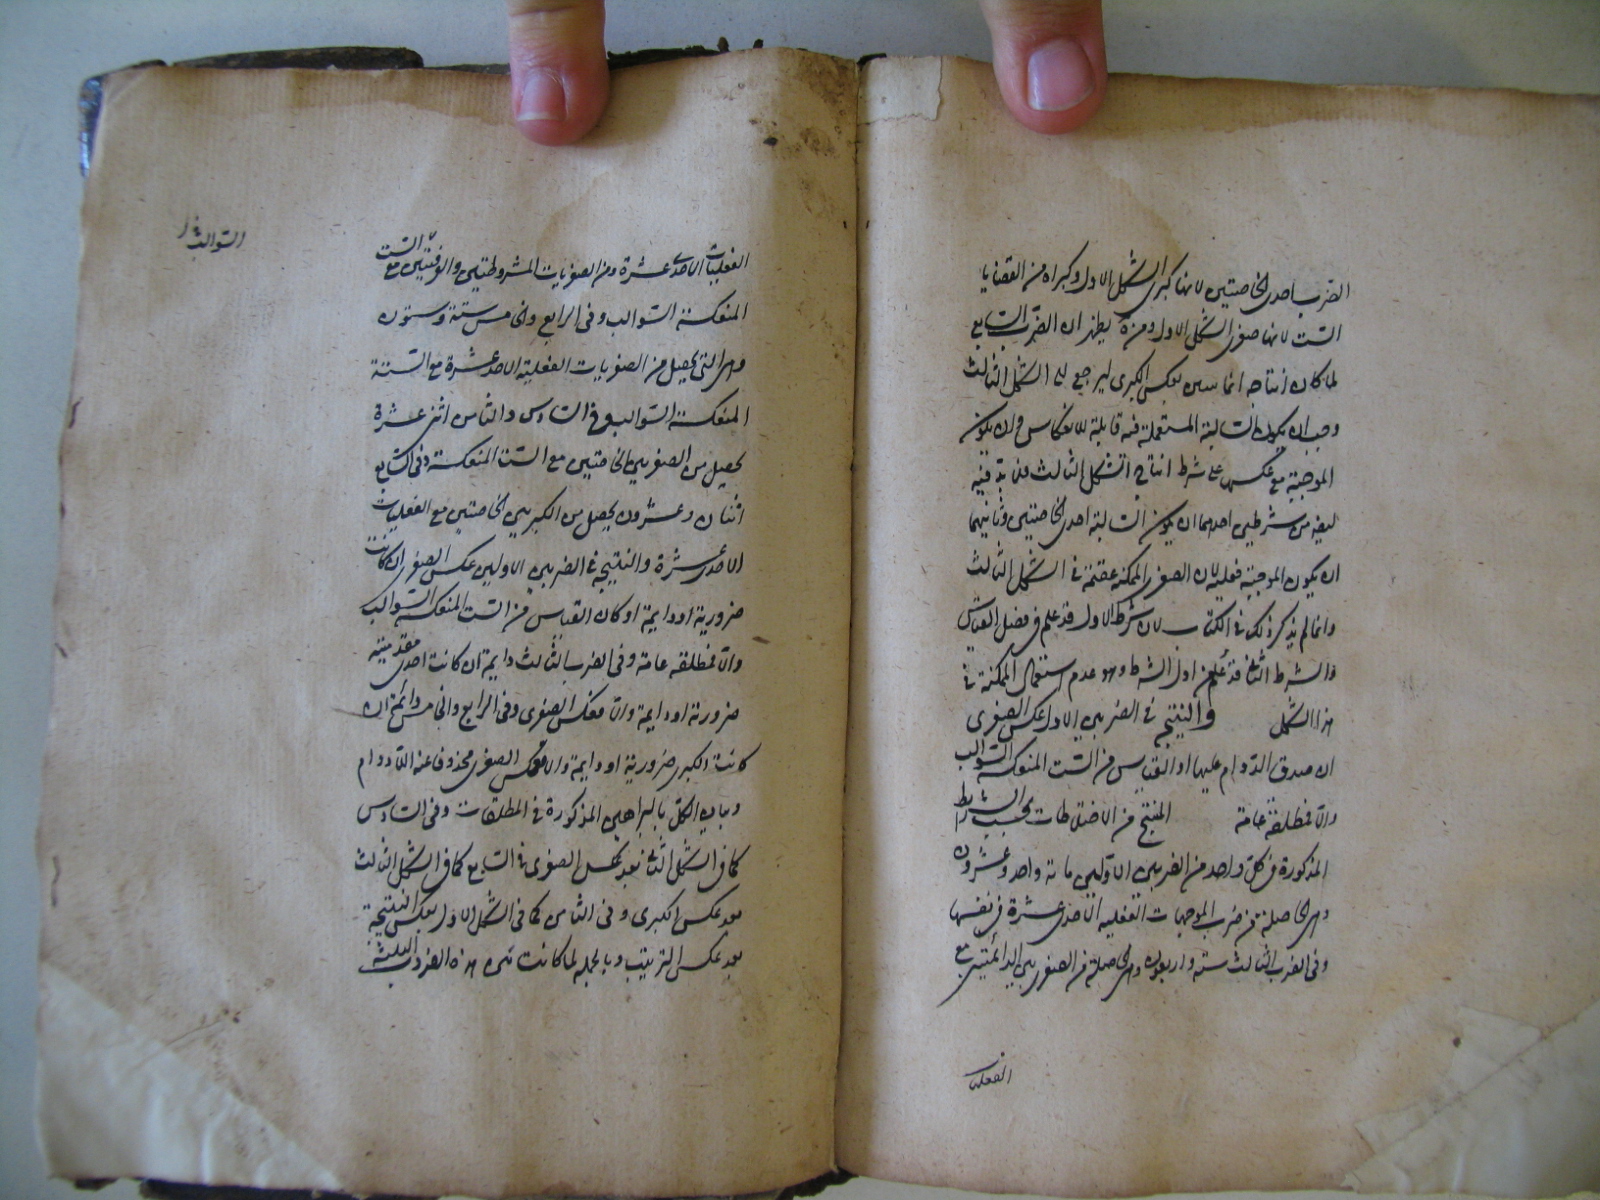 الضرب احدى الخاصتين لانها كبرى الشكل الاول وكبراه من القضايا
الست لانها صغرى الشكل الاول ومنه يظهر ان الضرب السابع
لما كان انتاجه انما يتبين بعكس الكبرى ليرجع الى الشكل الثالث
وجب ان يكون السالبة المستعملة فيه قابلة للانعكاس وان يكون
الموجبة مع عكسها على شرط انتاج الشكل الثالث فلا بد فيه
ايضا من شرطين احدهما ان يكون السالبة احدى الخاصتين وثانيهما
ان يكون الموجبة فعلية لان الصغرى الممكنة عقيمة في الشكل الثالث
وانما لم يذكر ذلك في الكتاب لان الشرط الاول قد علم في فصل القياس
والشرط الثاني قد علم من اول الشرط وهو عدم استعمال الممكنة في
هذا الشكل والنتيجة في الضربين الاول عكس الصغرى
ان صدق الدوام عليها او القياس من الست المنعكسة السوالب
والا فمطلقة عامة المنتج من الاختلاطات بحسب الشرايط
المذكورة في كل واحد من الضربين الاولين مائة واحد وعشرون
وهى الحاصلة من ضرب الموجهات الفعلية الاحدى عشرة في نفسها
وفى الضرب الثالث ستة واربعون وهى الحاصلة من الصغريين الدائمتين مع
الفعليات
السوالب
الفعليات الاحدى عشرة ومن الصغريات المشروطتين والعرفيتين مع الست
المنعكسة السوالب وفى الرابع والخامس ستة وستون
وهى التى تحصل من الصغريات الفعلية الاحدى عشرة مع الستة
المنعكسة السوالب وفي السادس والثامن اثنى عشرة
تحصل من الصغريين الخاصتين مع الست المنعكسة وفى السابع
اثنان وعشرون يحصل من الكبريين الخاصتين مع الفعليات
الاحدى عشرة والنتيجة في الضربين الاولين عكس الصغرى ان كانت
ضرورية او دايمة او كان القياس من الست المنعكسة السوالب
والا فمطلقة عامة وفى الضرب الثالث دايمة ان كانت احدى مقدمتيه
ضرورية او دايمة والا فعكس الصغرى وفى الرابع والخامس دائمة ان
كانت الكبرى ضرورية او دايمة والا فعكس الصغرى محذوفا عنه اللادوام
وبيان الكل بالبراهين المذكورة في المطلقات وفى السادس
كما في الشكل الثانى بعد عكس الصغرى وفي السابع كما في الشكل الثالث
بعد عكس الكبرى وفى الثامن كما فى الشكل الاول بعكس النتيجة
بعد عكس الترتيب وبالجملة لما كانت هذه الضروب الثلثة